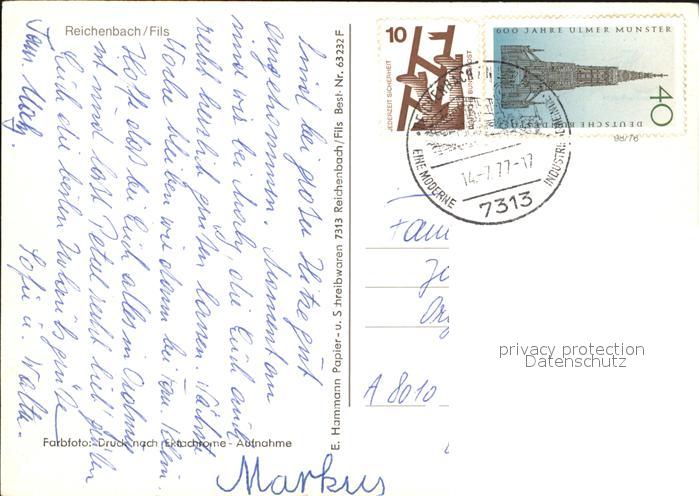 Reichenbach/Fils
Sind bei großer Hitze gut
angekommen. Momentan
sind wir bei Maly, die Euch auch
recht herzlich grüßen lassen. Nächste
Woche bleiben wir dann bei Fam.
Hoffe daß bei Euch alles in Ordnung
ist und laßt Peterl recht lieb grüßen
Euch die besten Urlaubsgrüße
Fam. Maly. Sofie u. Walter.
Farbfoto: Druck nach Ektachrome - Aufnahme
E. Hammann Papier- u. Schreibwaren 7313 Reichenbach/Fils Best.-Nr. 63232 F
10
JEDERZEIT SICHERHEIT
DEUTSCHE BUNDESPOST
600 JAHRE ULMER MÜNSTER
DEUTSCHE BUNDESPOST
40
98/76
EINE MODERNE INDUSTRIEGEMEINDE
14.-7.77-17
7313
Fam
A 8010
Markus
privacy protection
Datenschutz